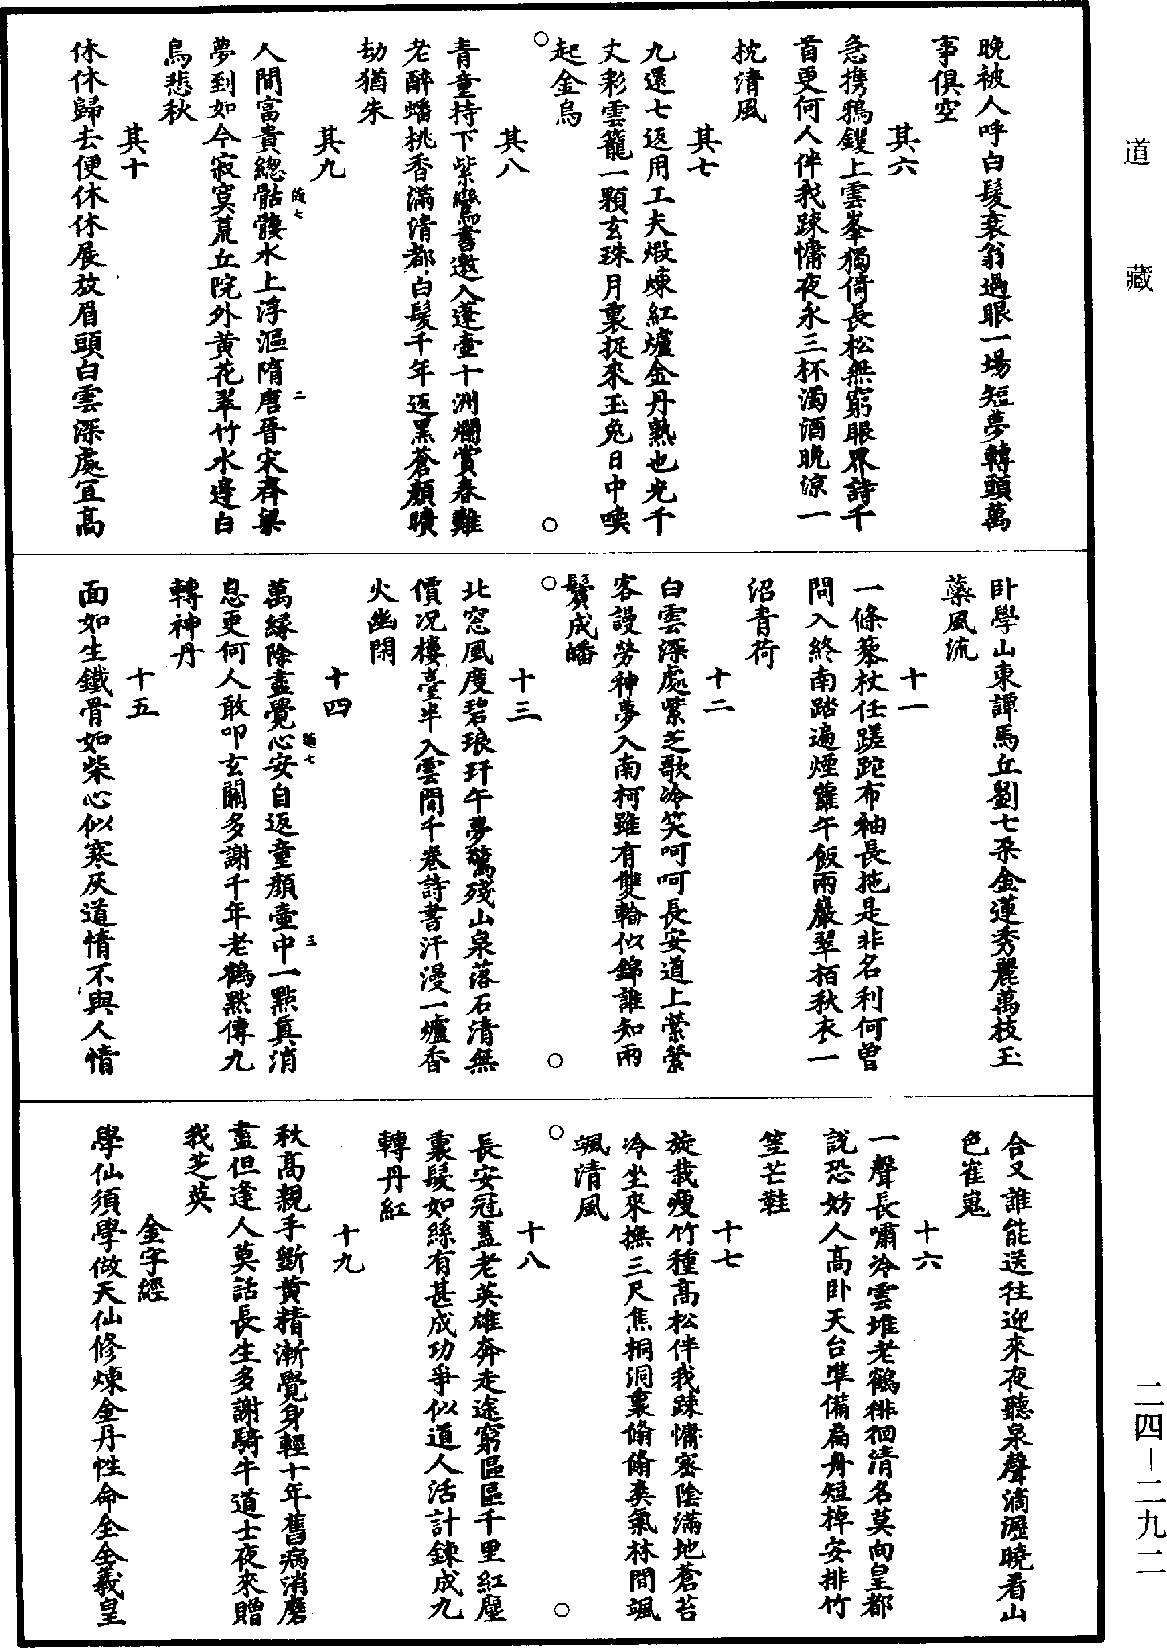 道藏
晚被人呼白髮衰翁過眼一場短夢轉頭萬
事俱空
其六
急携鴉鋤上雲峯獨倚長松無窮眼界詩千
首更何人伴我踈慵夜永三杯濁酒晚涼一
枕清風
其七
九還七返用工夫煆煉紅爐金丹熟也光千
丈彩雲籠一顆玄珠月裏捉來玉兔日中喚
起金烏
其八
青童持下紫鸞書邀入蓬壺十洲爛賞春難
老醉蟠桃香滿清都白髮千年返黑蒼顏曠
劫猶朱
其九
人間富貴總骷髏水上浮漚隋唐晉宋齊梁
夢到如今寂寞荒丘院外黃花翠竹水邊白
鳥悲秋
其十
休休歸去便休休展放眉頭白雲深處宜高
臥學山東譚馬丘劉七朶金蓮秀麗萬枝玉
藥風流
十一
一條藜杖任蹉跎布袖長拖是非名利何曾
問入終南踏遍煙蘿午飯兩巖翠栢秋衣一
沼青荷
十二
白雲深處紫芝歌冷笑呵呵長安道上縈縈
客謾勞神夢入南柯雖有雙輪似錦誰知兩
鬢成皤
十三
北窓風度碧琅玕午夢驚殘山泉落石清無
價况樓臺半入雲間千卷詩書汗漫一爐香
火幽閑
十四
萬緣除盡覺心安自返童顏壺中一點真消
息更何人敢叩玄關多謝千年老鶴默傳九
轉神丹
十五
面如生鐵骨如柴心似寒灰道情不與人情
合又誰能送往迎來夜聽泉聲滴瀝曉看山
色崔嵬
十六
一聲長嘯冷雲堆老鶴徘徊清名莫向皇都
說恐妨人高臥天台準備扁舟短棹安排竹
笠芒鞋
十七
旋栽瘦竹種高松伴我踈慵密陰滿地蒼苔
冷坐來撫三尺焦桐洞裏翛翛爽氣林間颯
颯清風
十八
長安冠蓋老英雄奔走途窮區區千里紅塵
裏髮如絲有甚成功爭似道人活計鍊成九
轉丹紅
十九
秋高親手斷黃精漸覺身輕十年舊病消磨
盡但逢人莫話長生多謝騎牛道士夜來贈
我芝英
金字經
學仙須學做天仙修煉金丹性命全全義皇
隨七 二
隨七 三
二四－二九二